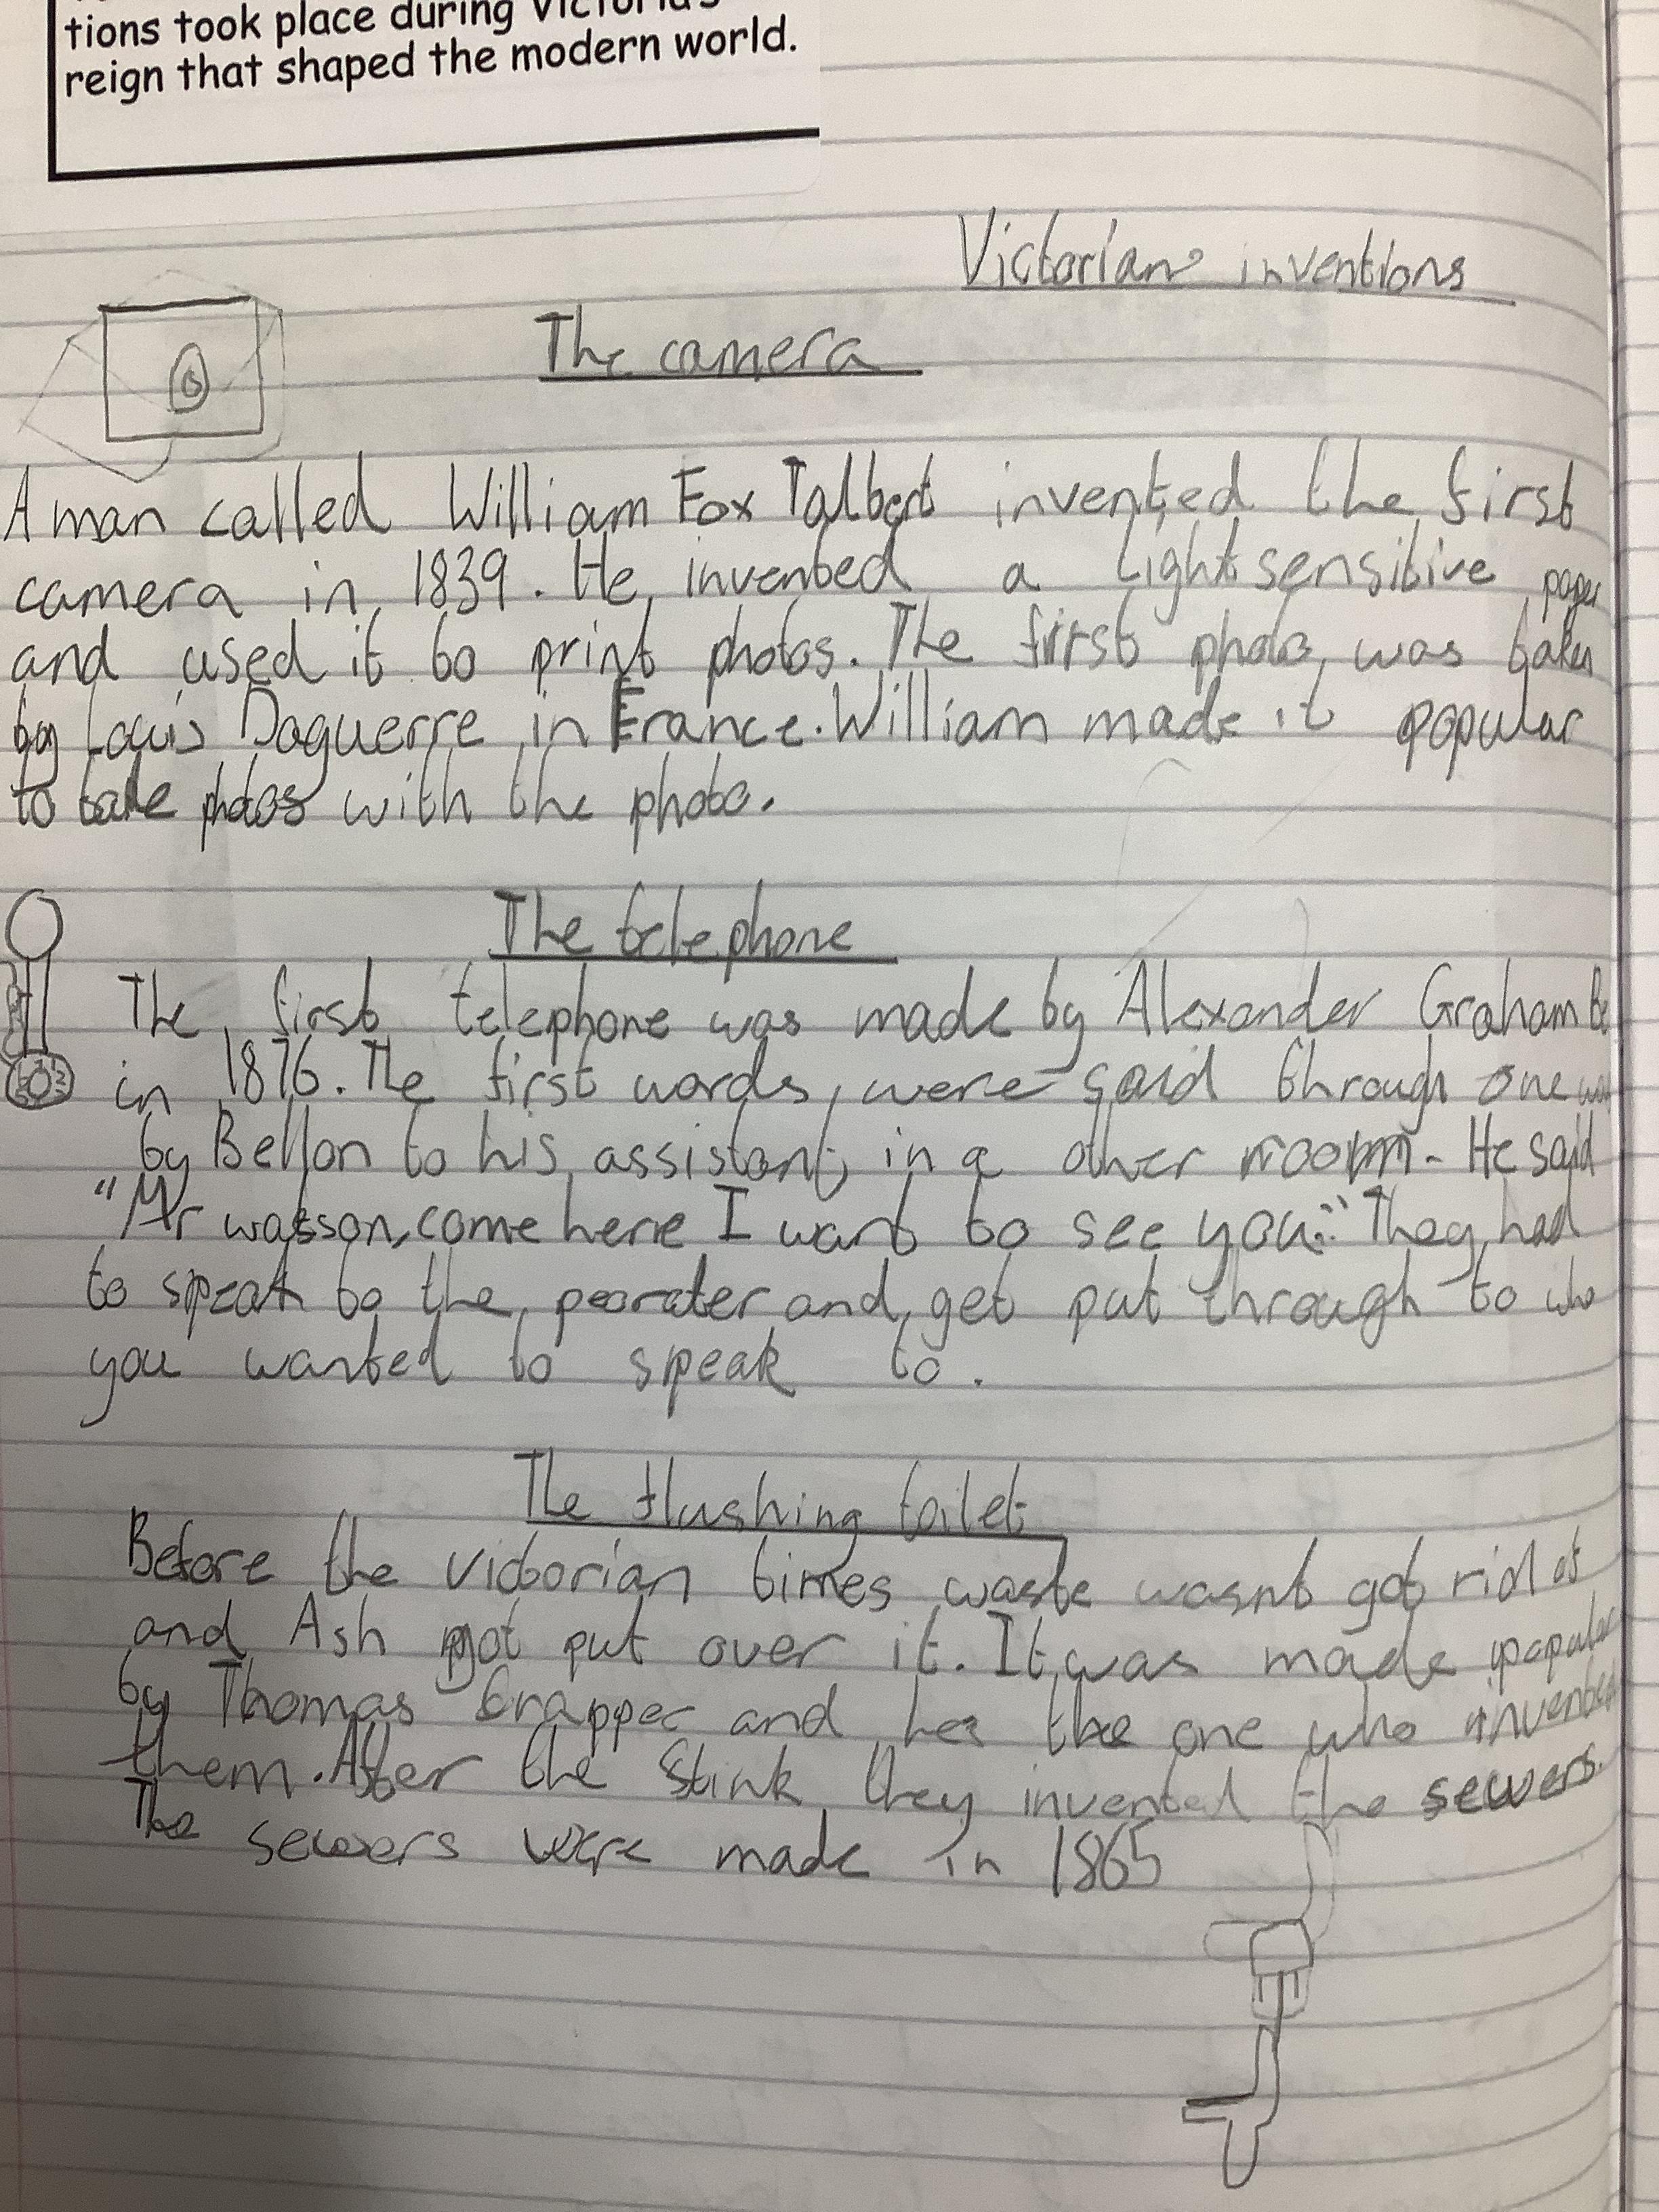 tions took place during Victoria's
reign that shaped the modern world.
Victorians inventions
The camera
A man called William Fox Talbert invented the first
camera in 1839. He invented a light sensitive paper
and used it to print photos. The first photo was taken
by Louis Daguerre in France. William made it popular
to take photos with the photo.
The telephone
The first telephone was made by Alexander Graham Be
in 1876. The first words were said through one
by Bell on to his assistant in a other room. He said
"Mr watson, come here I want to see you." They had
to speak to the peorater and get put through to who
you wanted to speak to.
The flushing toilet
Before the victorian times waste wasnt got rid of
and Ash got put over it. It was made popular
by Thomas Crapper and hes the one who invented
them. After the Stink they invented the sewers.
The sewers were made in 1865